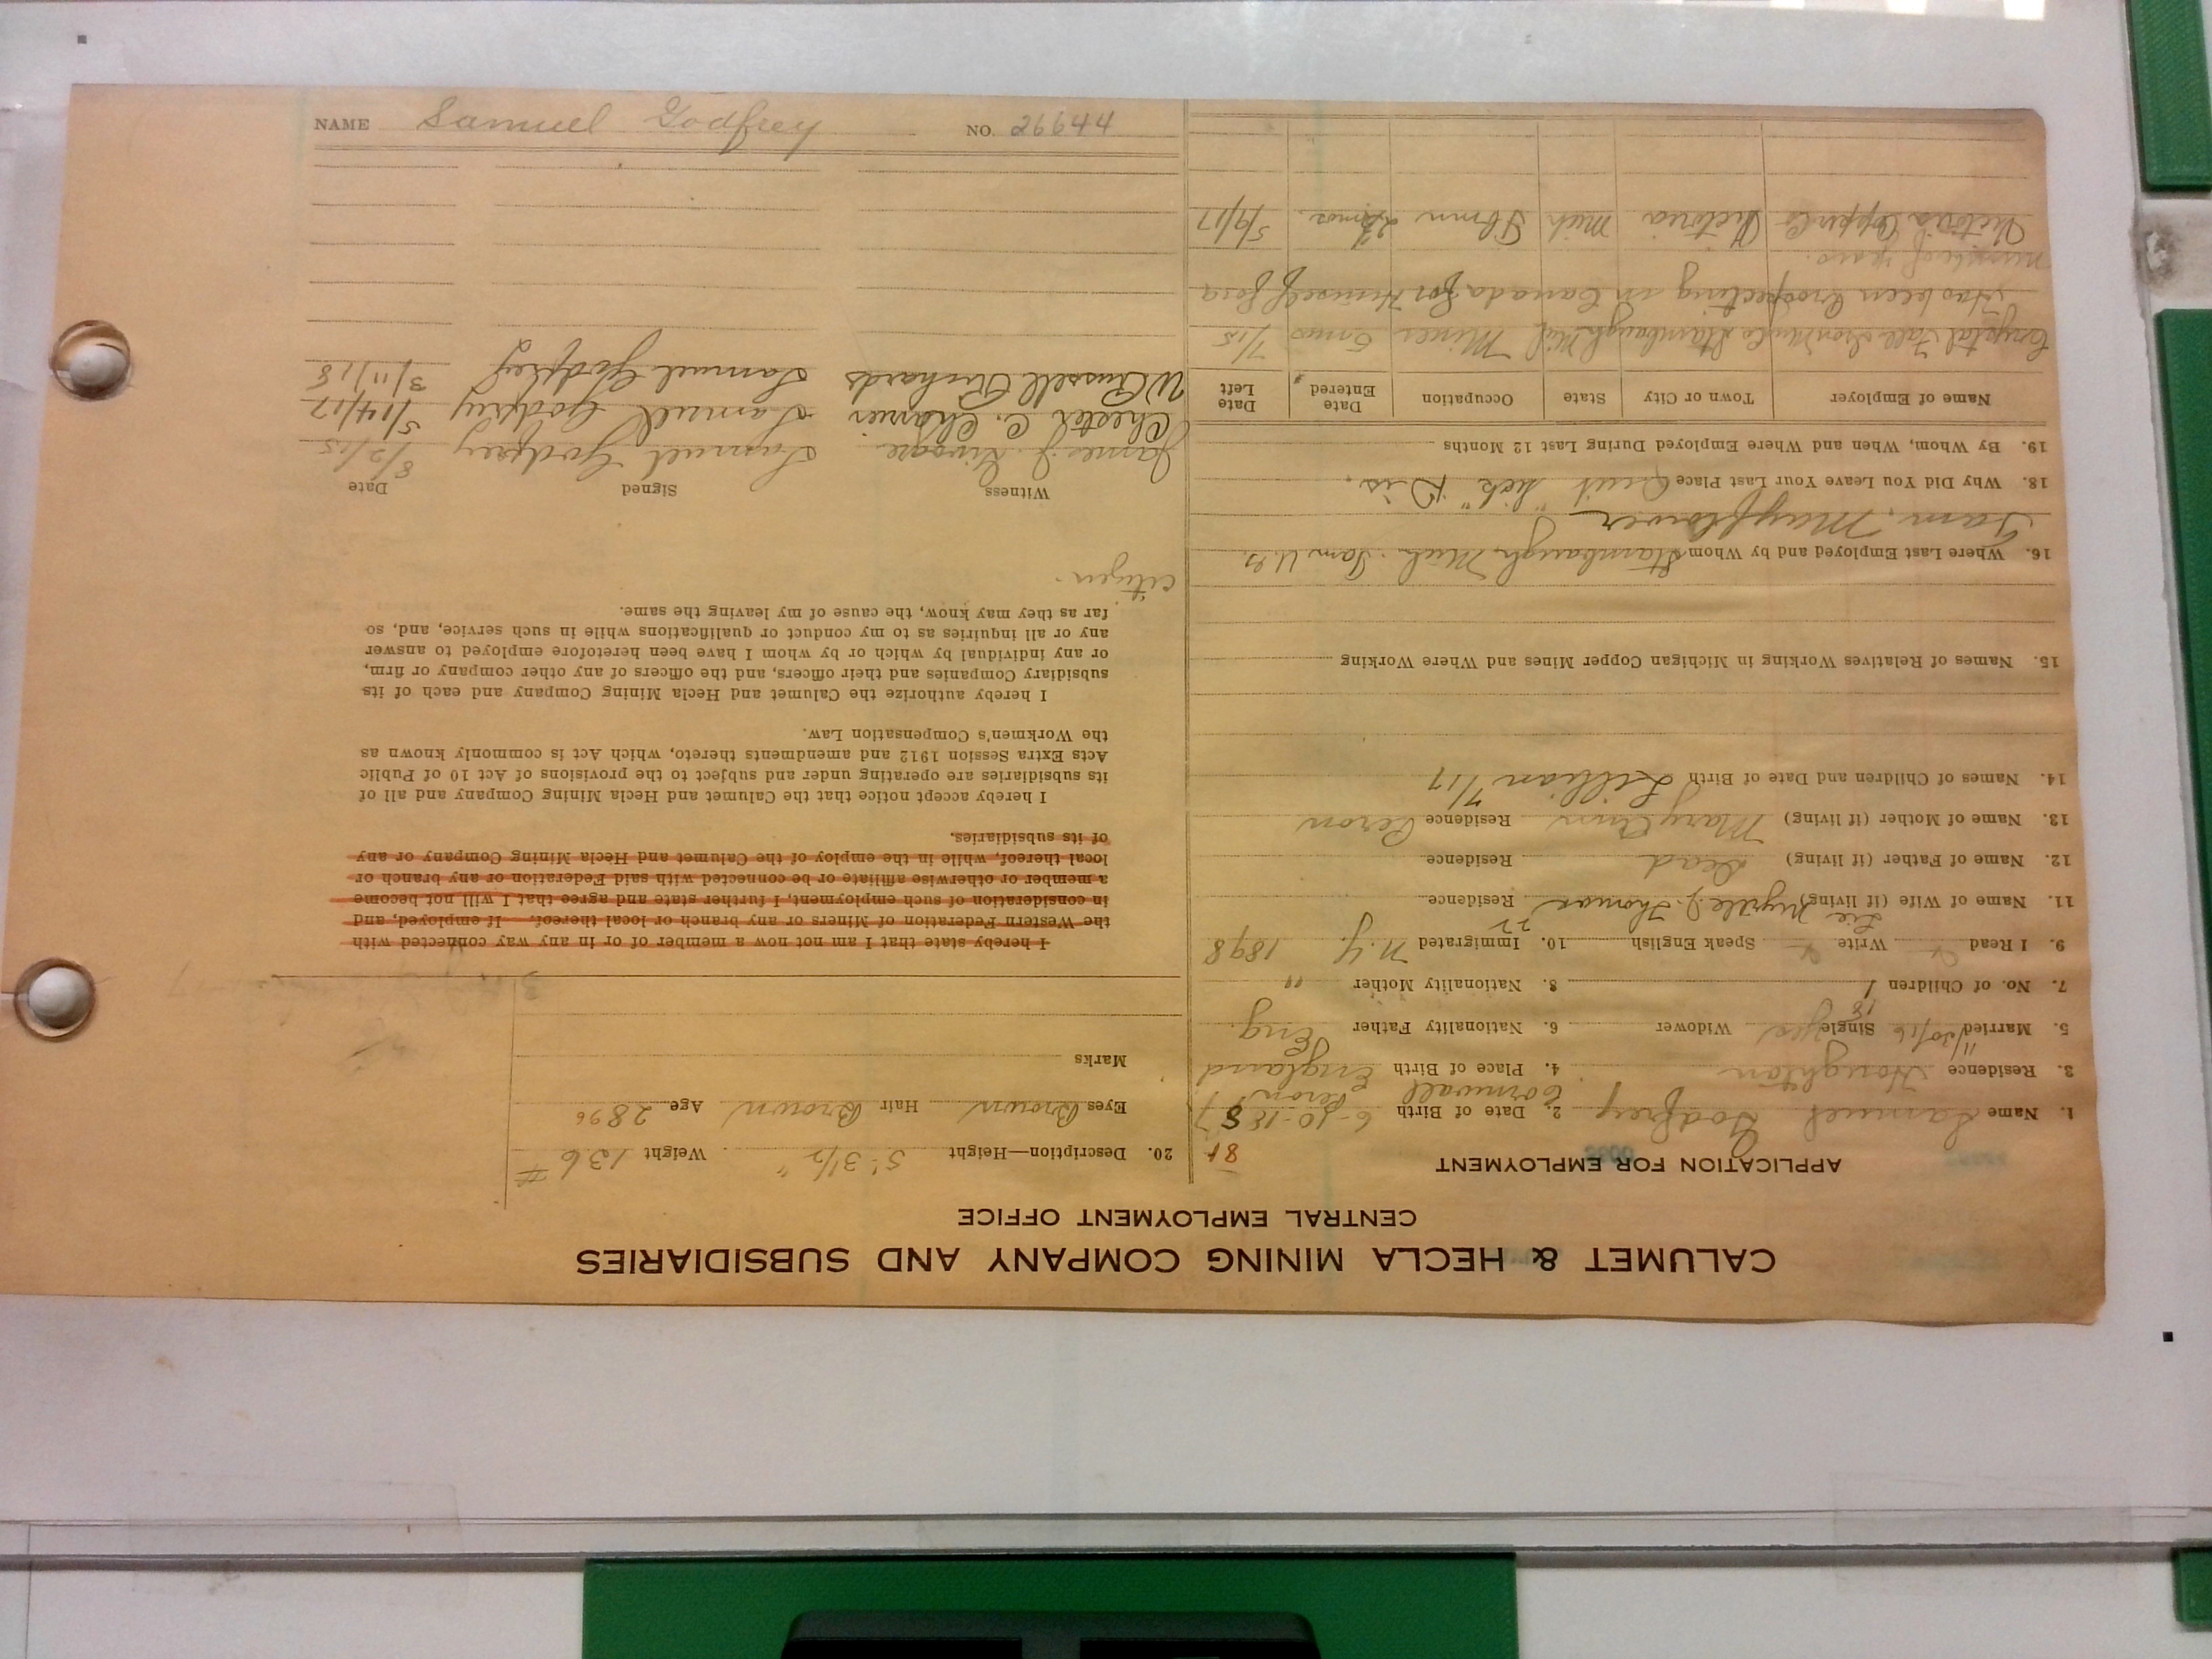 CALUMET & HECLA MINING COMPANY AND SUBSIDIARIES
CENTRAL EMPLOYMENT OFFICE
APPLICATION FOR EMPLOYMENT
1. Name Samuel Godfrey 2. Date of Birth 6-10-1887
Cornwall
3. Residence Houghton 4. Place of Birth England
5. Married 11/30/16 Single Yes Widower 6. Nationality Father Eng.
7. No. of Children 1 8. Nationality Mother "
9. I Read Write Speak English 10. Immigrated N.Y. 1898
11. Name of Wife (if living) Myrtle J. Thomas Residence
12. Name of Father (if living) Dead Residence
13. Name of Mother (if living) Mary Ann Residence
14. Names of Children and Date of Birth Lillian 7/17
15. Names of Relatives Working in Michigan Copper Mines and Where Working
16. Where Last Employed and by Whom Stambaugh Mich.
Tam. Mayflower
18. Why Did You Leave Your Last Place Quit "Sick" Dis.
19. By Whom, When and Where Employed During Last 12 Months
Name of Employer Town or City State Occupation Date Entered Date Left
Crystal Falls Iron Mine Co Stambaugh Mich Miner 5 mos 7/15
Has been Prospecting in Canada for Himself for a
number of years.
Victoria Copper Co Victoria Mich mos. 5/9/17
20. Description—Height 5' 3 1/2" Weight 136 #
Eyes Brown Hair Brown Age 28
Marks
I hereby state that I am not now a member of or in any way connected with
the Western Federation of Miners or any branch or local thereof. If employed, and
in consideration of such employment, I further state and agree that I will not become
a member or otherwise affiliate or be connected with said Federation or any branch or
local thereof, while in the employ of the Calumet and Hecla Mining Company or any
of its subsidiaries.
I hereby accept notice that the Calumet and Hecla Mining Company and all of
its subsidiaries are operating under and subject to the provisions of Act 10 of Public
Acts Extra Session 1912 and amendments thereto, which Act is commonly known as
the Workmen's Compensation Law.
I hereby authorize the Calumet and Hecla Mining Company and each of its
subsidiary Companies and their officers, and the officers of any other company or firm,
or any individual by which or by whom I have been heretofore employed to answer
any or all inquiries as to my conduct or qualifications while in such service, and, so
far as they may know, the cause of my leaving the same.
citizen.
Witness Signed Date
James J. Samuel Godfrey 8/2/15
Chester C. Samuel Godfrey 5/14/17
W Russell Richards Samuel Godfrey 3/11/18
NAME Samuel Godfrey NO. 26644